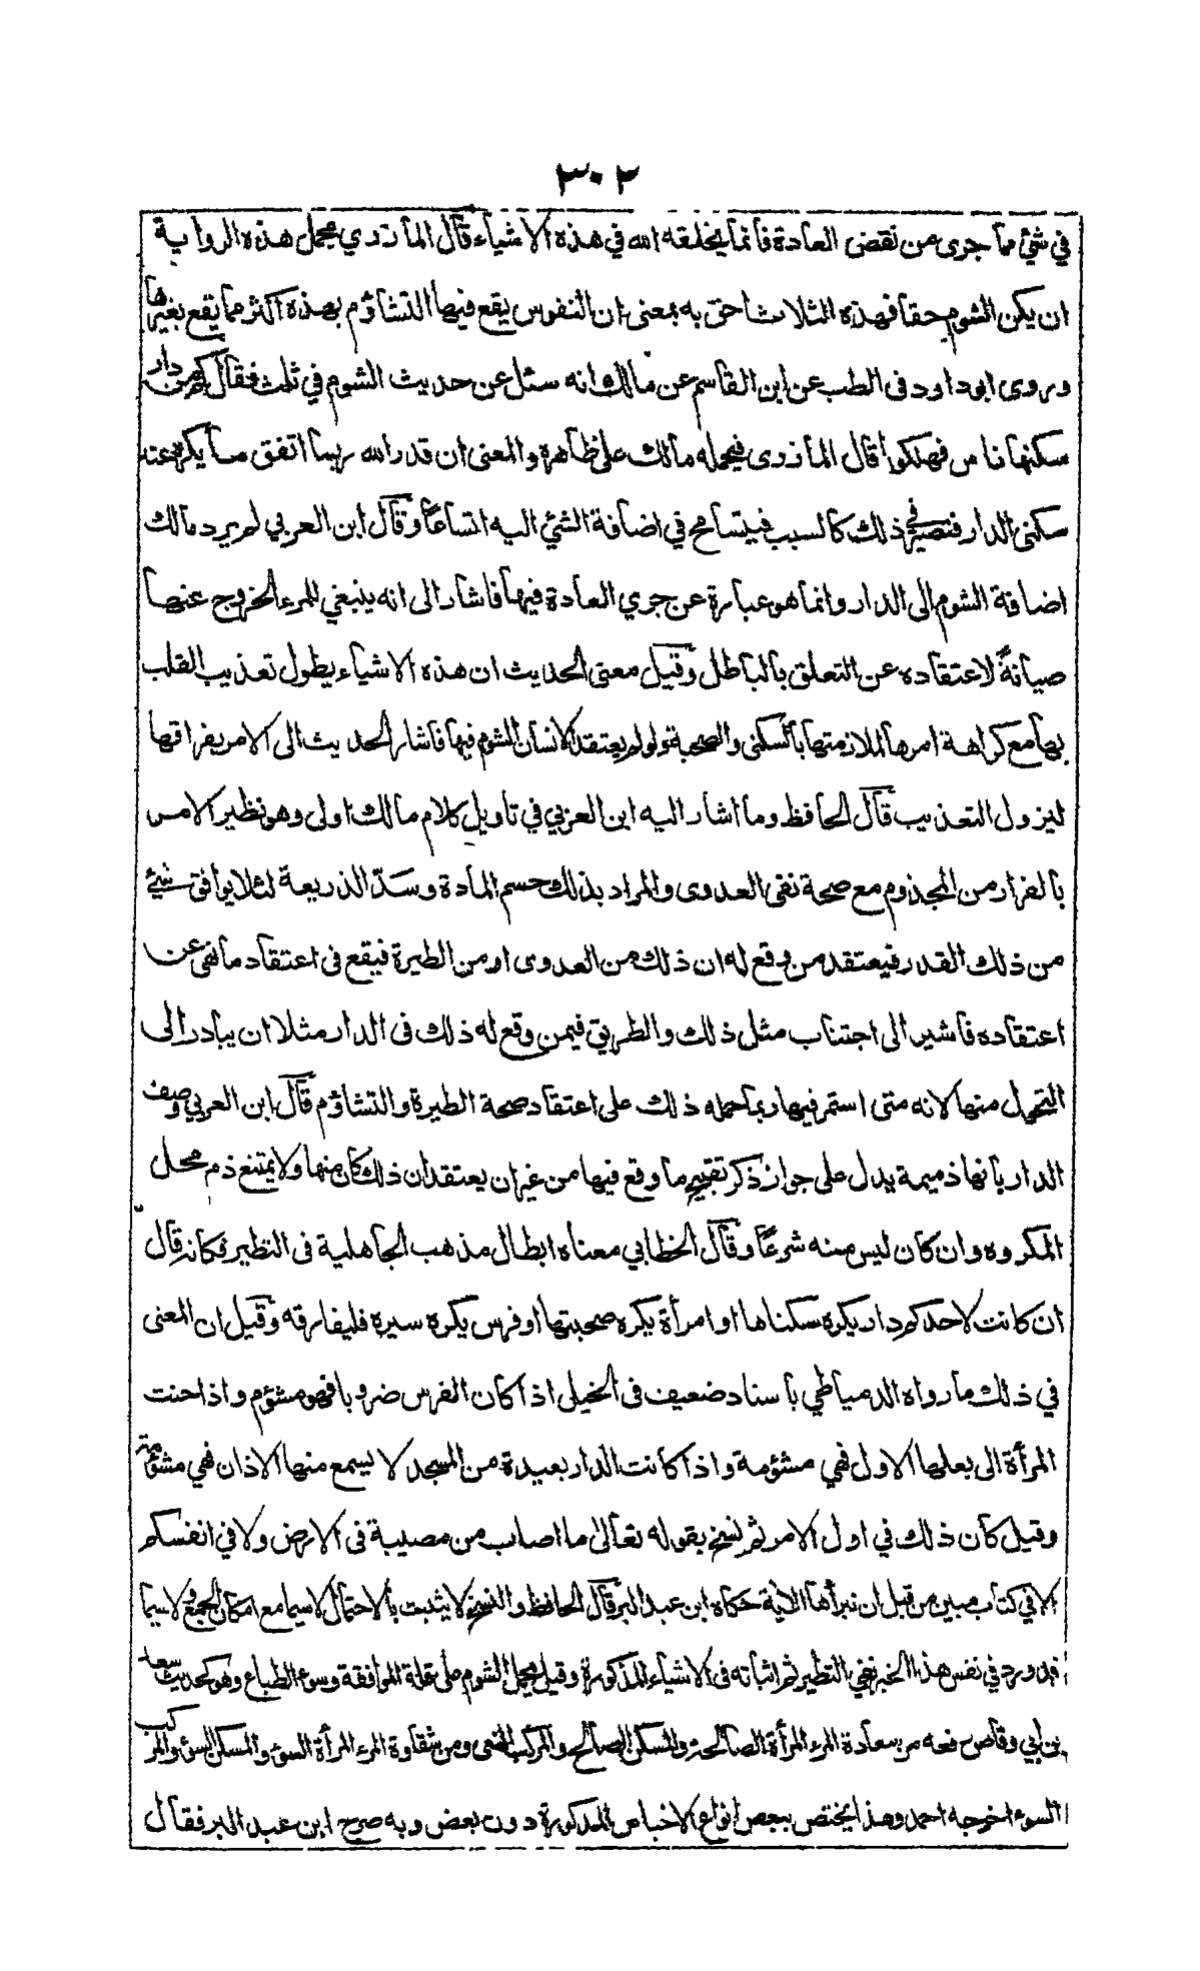 ٣٠٢
في شئ مما جرى من نقض العادة فانما يخلقه الله في هذه الاشياء قال المازري مجمل هذه الرواية
ان يكن الشوم حقا فهذه الثلاث احق به بمعنى ان النفوس يقع فيها التشاؤم بهذه اكثر مما يقع بغيرها
وروى ابو داود فى الطب عن ابن القاسم عن مالك انه سئل عن حديث الشوم في ثلث فقال كم من دار
سكنها ناس فهلكوا قال المازرى فيحمله مالك على ظاهره والمعنى ان قدر الله ربما اتفق ما يكره عند
سكنى الدار فتصير في ذلك كالسبب فيتسامح في اضافة الشئ اليه اتساعًا وقال ابن العربي لم يرد مالك
اضافة الشوم الى الدار وانما هو عبارة عن جري العادة فيها فاشار الى انه ينبغي للمرء الخروج عنها
صيانةً لاعتقاده عن التعلق بالباطل وقيل معنى الحديث ان هذه الاشياء يطول تعذيب القلب
بها مع كراهة امرها لملازمتها بالسكنى والصحبة ولو لم يعتقد الانسان الشوم فيها فاشار الحديث الى الامر بفراقها
ليزول التعذيب قال الحافظ وما اشار اليه ابن العربي في تاويل كلام مالك اولى وهو نظير الامر
بالفرار من المجذوم مع صحة نفى العدوى والمراد بذلك حسم المادة وسدّ الذريعة لئلا يوافق شئ
من ذلك القدر فيعتقد من وقع له ان ذلك من العدوى او من الطيرة فيقع فى اعتقاد ما نهى عن
اعتقاده فاشير الى اجتناب مثل ذلك والطريق فيمن وقع له ذلك فى الدار مثلا ان يبادر الى
التحول منها لانه متى استمر فيها ربما حمله ذلك على اعتقاد صحة الطيرة والتشاؤم قال ابن العربي وصف
الدار بانها ذميمة يدل على جواز ذكر تقبيح ما وقع فيها من غير ان يعتقد ان ذلك كان منها ولا يمتنع ذم محل
المكروه وان كان ليس منه شرعًا وقال الخطابي معناه ابطال مذهب الجاهلية فى التطير فكانه قال
ان كانت لاحدكم دار يكره سكناها او امرأة يكره صحبتها او فرس يكره سيره فليفارقه وقيل ان المعنى
في ذلك ما رواه الدمياطي باسناد ضعيف فى الخيل اذا كان الفرس ضروبا فهو مشؤم واذا حنت
المرأة الى بعلها الاول فهي مشؤمة واذا كانت الدار بعيدة من المسجد لا يسمع منها الاذان فهي مشؤمة
وقيل كان ذلك في اول الامر ثم نسخ بقوله تعالى ما اصاب من مصيبة فى الارض ولا في انفسكم
الا في كتاب مبين من قبل ان نبرأها الاية حكاه ابن عبد البر قال الحافظ والنسخ لا يثبت بالاحتمال لاسيما مع امكان الجمع ولاسيما
قد ورد في نفس هذا الخبر نفي التطير ثم اثباته فى الاشياء المذكورة وقيل يحمل الشوم على قلة الموافقة وسوء الطباع وهو كحديث سعد
بن ابي وقاص رفعه من سعادة المرء المرأة الصالحة والمسكن الصالح والمركب الهنى ومن شقاوة المرء المرأة السوء والمسكن السوء والمركب
السوء اخرجه احمد وهذا يختص ببعض انواع الاخباس المذكورة دون بعض وبه صرح ابن عبد البر فقال